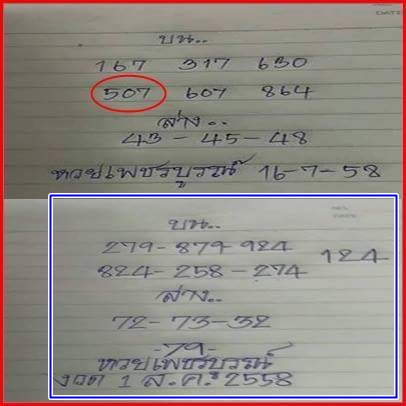 DATE
บน..
167 317 630
507 607 864
ล่าง..
43 - 45 - 48
หวยเพชรบูรณ์ 16-7-58
NO.
DATE
บน..
279 - 879 - 924
824 - 258 - 274 124
ล่าง..
72 - 73 - 32
-79-
หวยเพชรบูรณ์
งวด 1 ส.ค. 2558